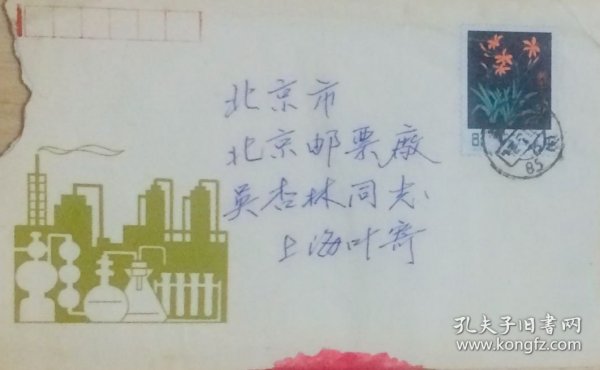 北京市
北京邮票厰
吴杏林同志
上海叶寄
8
85
孔夫子旧书网
www.kongfz.com